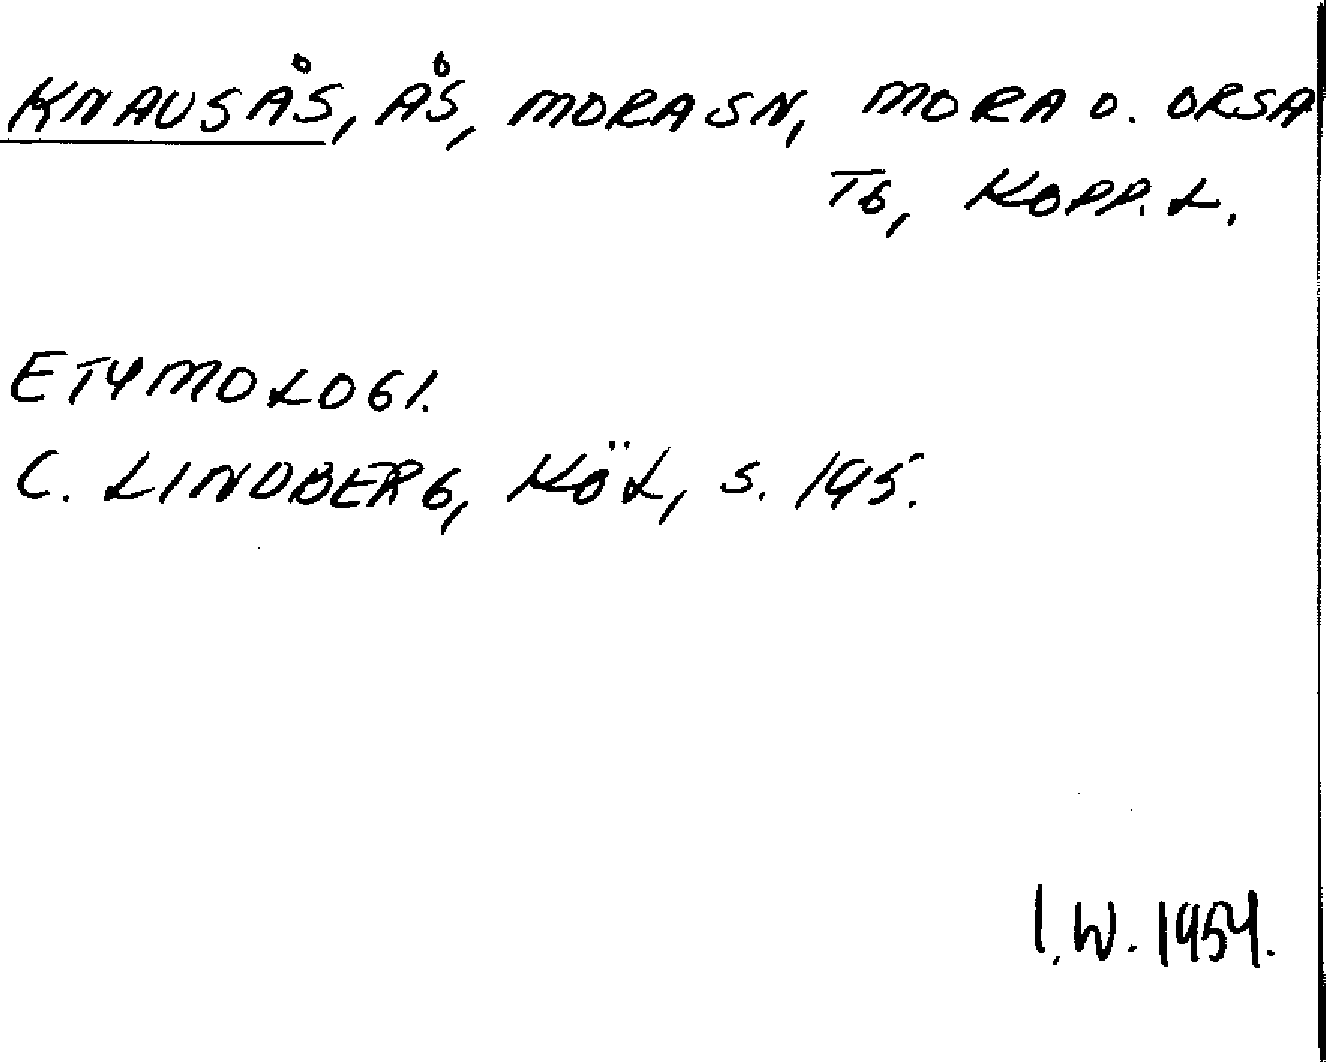 KNAUSÅS, ÅS, MORA SN, MORA O. ORSA
TG, KOPP. L.
ETYMOLOGI.
C. LINDBERG, KÖL, S. 195.
I. W. 1954.